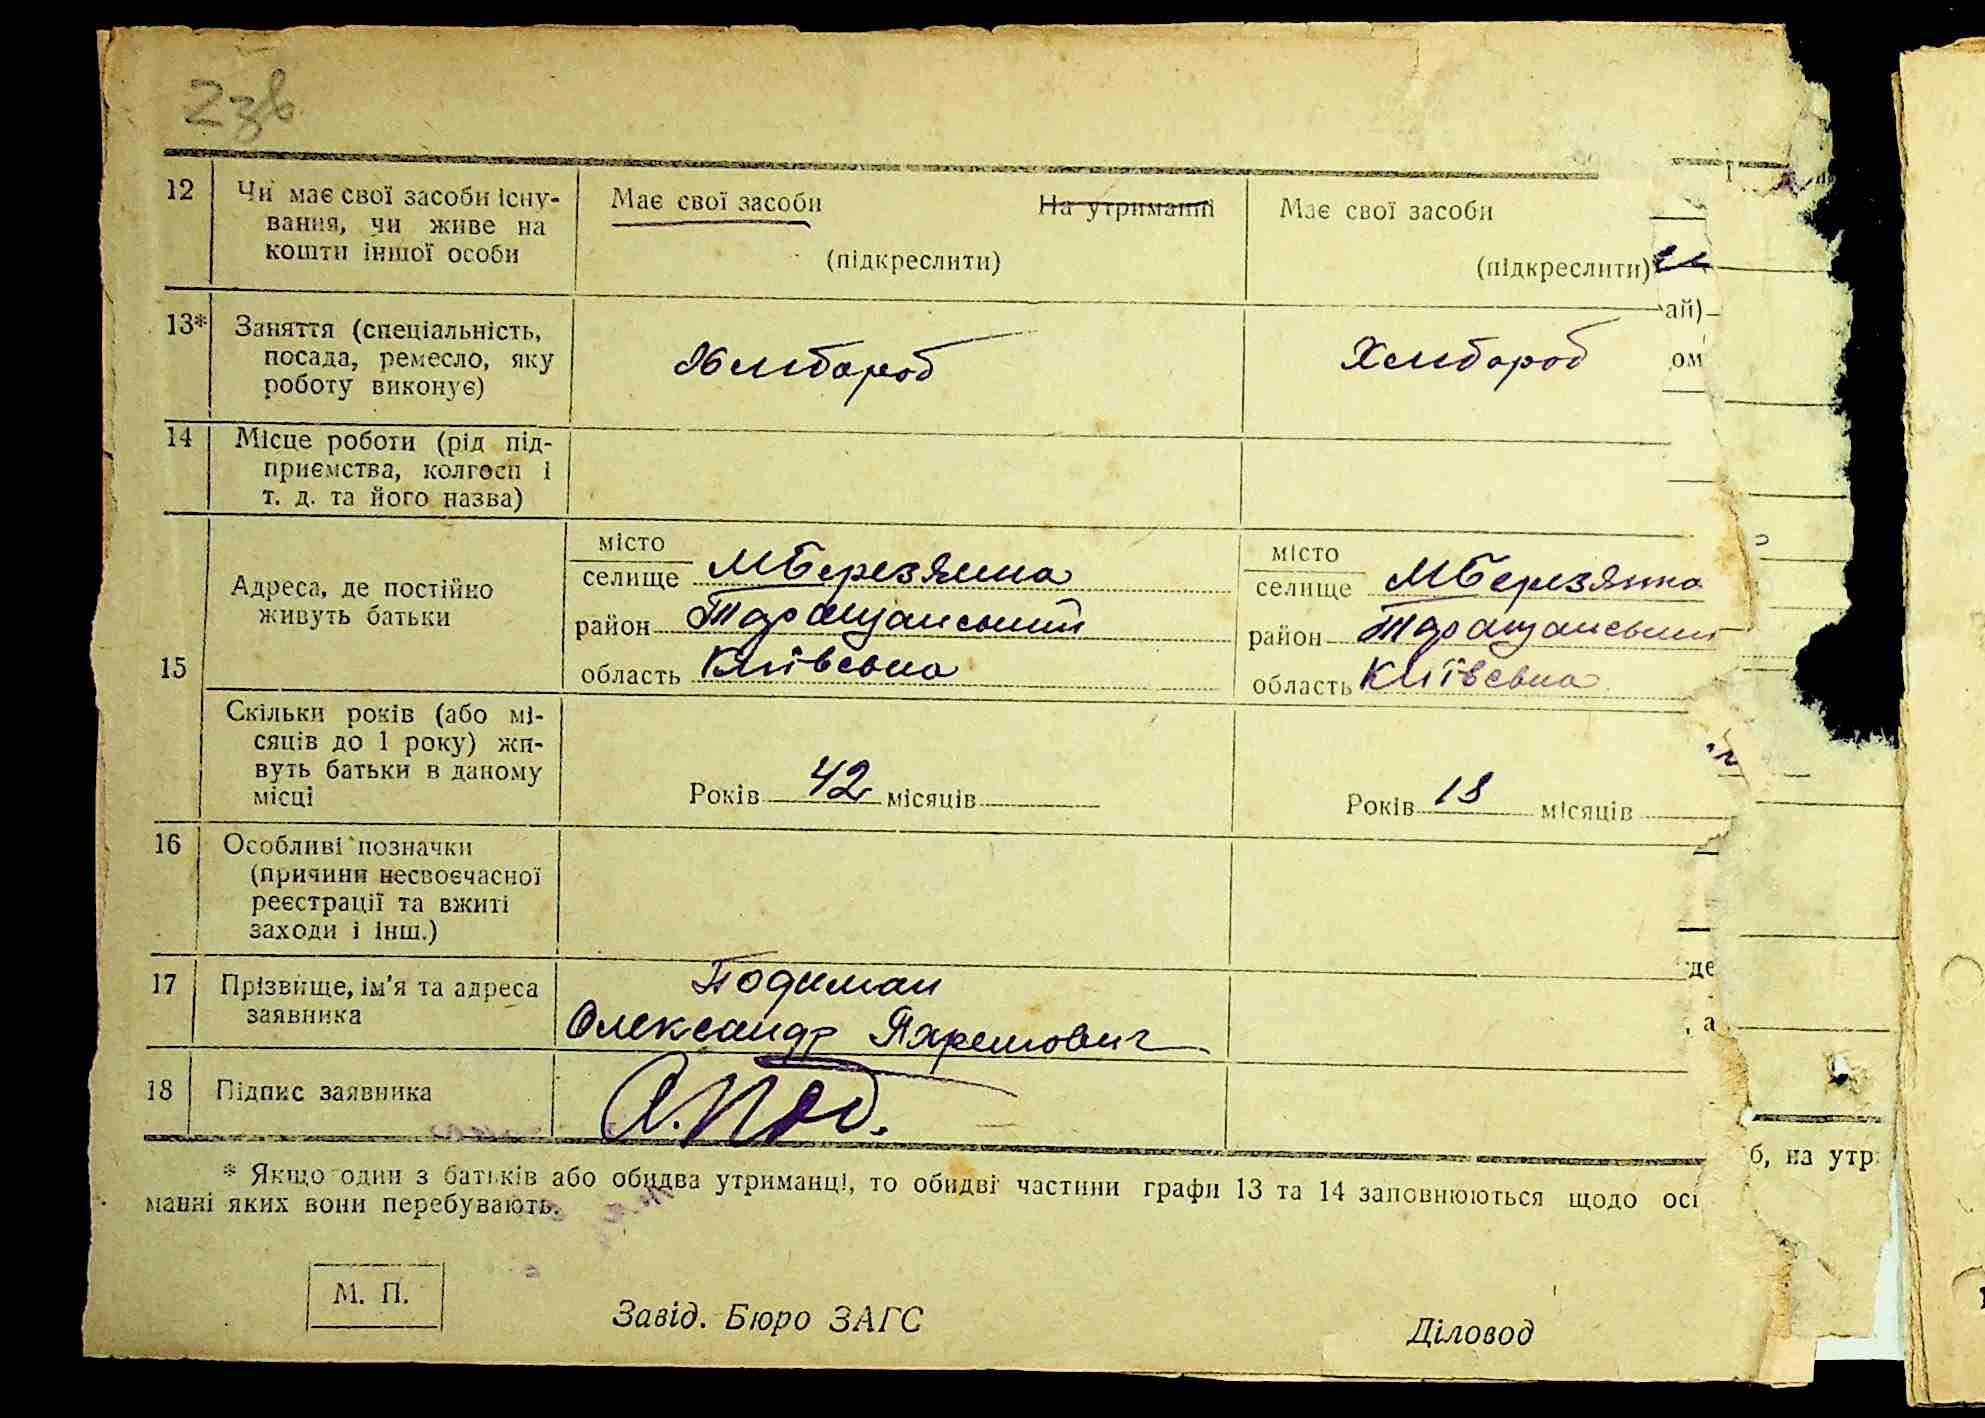 2зв
12 Чи має свої засоби існу- Має свої засоби На утриманні Має свої засоби
вання, чи живе на
кошти іншої особи (підкреслити) (підкреслити)
ай)
13* Заняття (спеціальність,
посада, ремесло, яку Хлибороб Хлибороб ом
роботу виконує)
14 Місце роботи (рід під-
приємства, колгосп і
т. д. та його назва)
місто місто
Адреса, де постійно селище МБерезянна селище МБерезянна
живуть батьки район Таращанський район Таращанський
15 область Київсьна область Київсьна
Скільки років (або мі-
сяців до 1 року) жи-
вуть батьки в даному Років 42 місяців Років 18 місяців
місці
16 Особливі позначки
(причини несвоєчасної
реєстрації та вжиті
заходи і інш.)
17 Прізвище, ім'я та адреса Подиман де
заявника Олександр Яхремович , а
18 Підпис заявника А.Под.
* Якщо один з батьків або обидва утриманці, то обидві частини графи 13 та 14 заповнюються щодо осі б, на утр
манні яких вони перебувають.
М. П.
Завід. Бюро ЗАГС Діловод